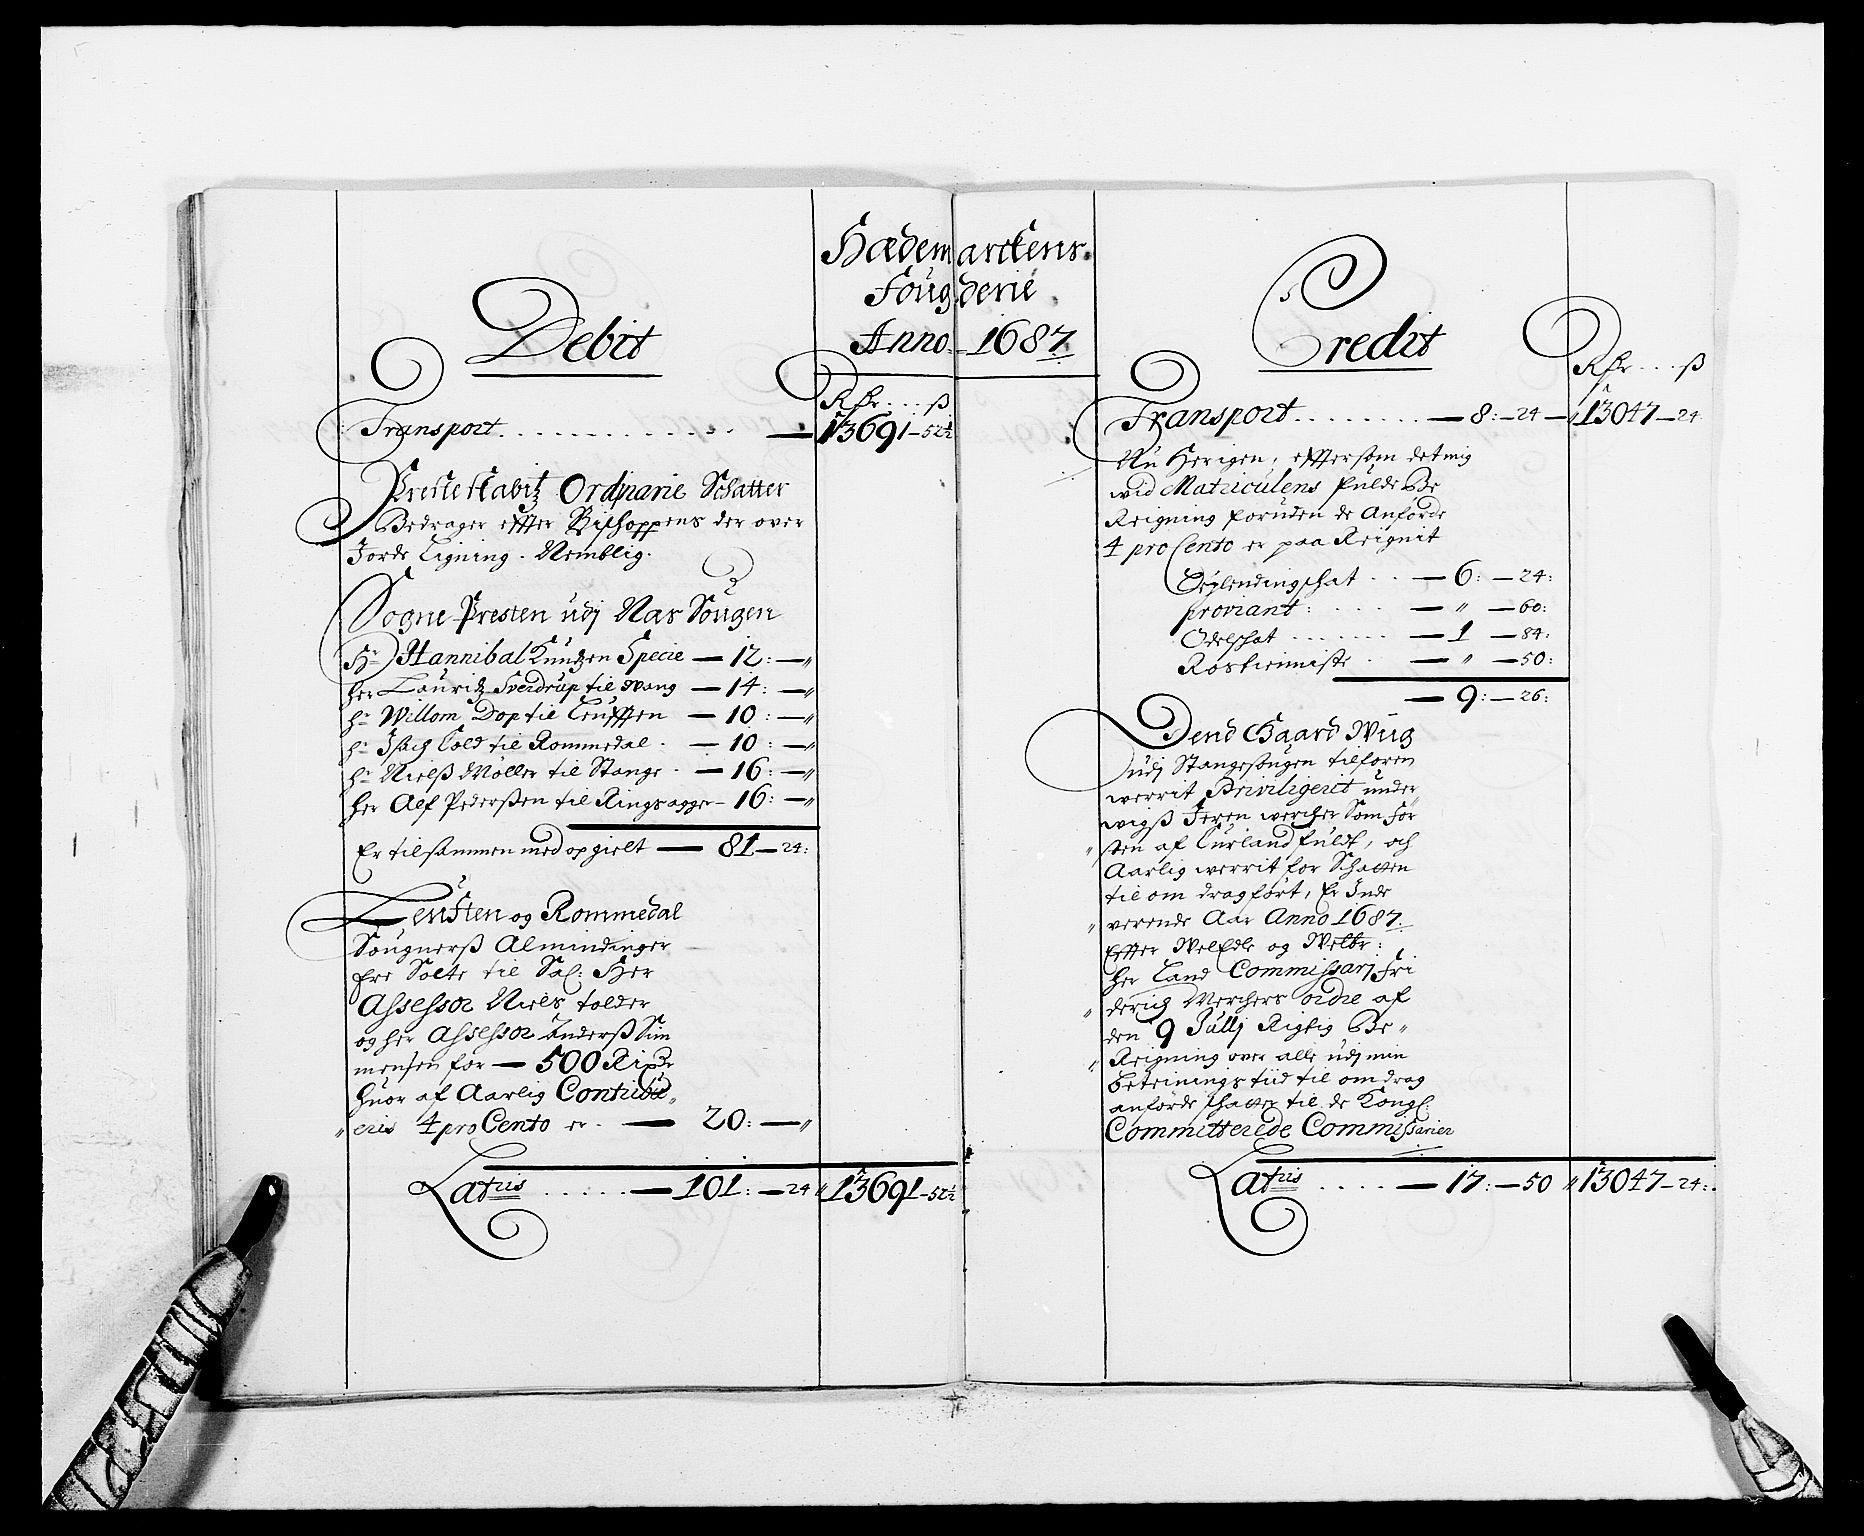 Hædemarckens
Fougderie
Anno 1687
Debit
Rdr ß
Transport 13691 - 52½
PresteSkabetz Ordinarie Schatter
Bedrager effter Bischoppens der over
Jorde Ligning. Nemblig.
Sogne Presten udj Nas Sougen
Hr Hannibal Knudzen Specie — 12: — "
her Lauridz Sverdrup til Wang — 14: — "
hr Willom Dop til Leufften — 10: — "
hr Isach Cold til Rommedal — 10: — "
hr Nielß Møller til Stange — 16: — "
her Alf Pederßen til Ringsagger — 16: — "
Er tilsammen med opgielt — 81 — 24:
Leuften og Rommedal
Sougnerß Almindinger
ere Solte til Sal: Her
Assessor Niels tolder
og her Assessor Anderß Sim
mensen for — 500 Rixdr
huor af Aarlig Contribu„
„eris 4 pro Cento er — 20: — "
Latus — 101: — 24 " 13691 - 52½
Credit
Rdr ß
Transport — 8: — 24 — " 13047 — 24
Nu Herigen, efftersom det mig
wid Matriculens fulde Be
Reigning foruden de Anførde
4 pro Cento er paa Reignit
Leylendingschat — 6: — 24:
proviant: — " — 60:
Odelschat — 1 — 84:
Rostieniste — " — 50:
— 9: — 26:
Dend Gaard Wiig
udj Stangesougen tilforen
werrit Priviligerit under
wigß Jeren wercher Som for
„sten af Curland fuldt, och
Aarlig werrit for Schatten
til om dragført, Er Inde
„verende Aar Anno 1687
Effter WelEdle og Welbr:
her Land Commissarj Fri
„derich Merchers ordre af
den 9 Jullj Rigtig Be„
„Reigning over alle udj min
betienings tiid til om drag
anførde schatter til de Kongl:
Committerede Commissarier
Latus — 17: — 50 " 13047 — 24: